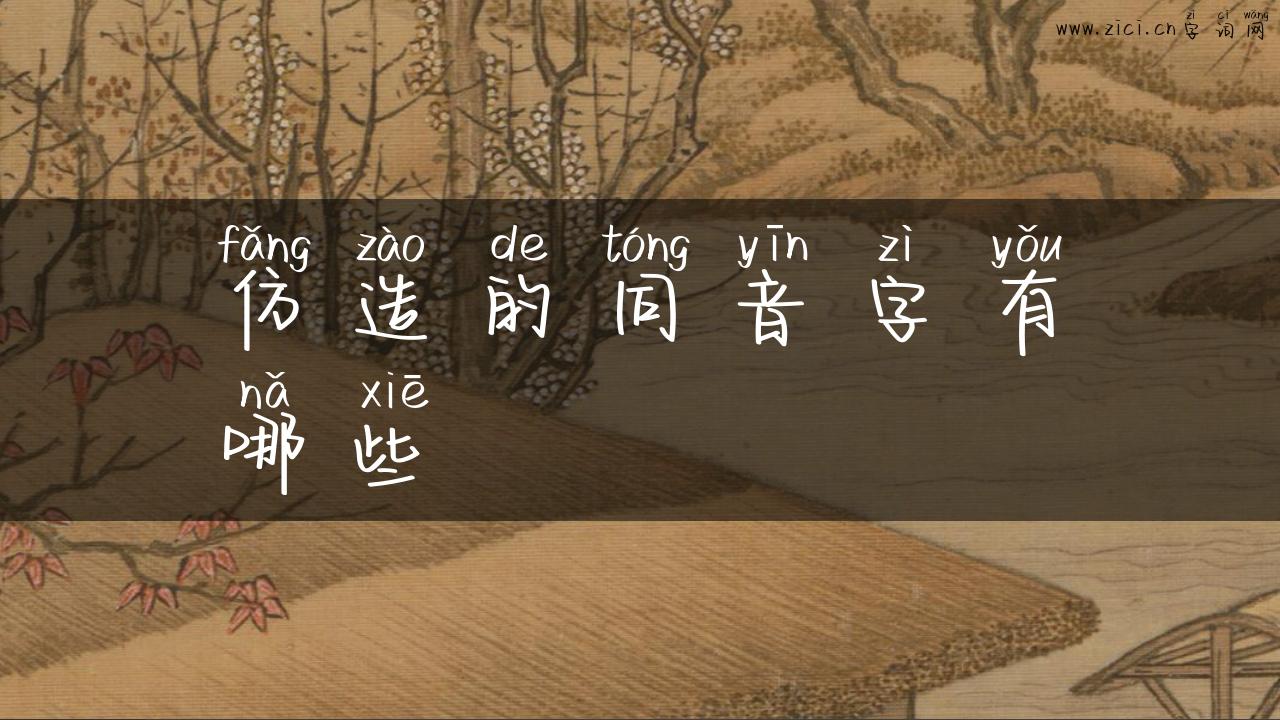 zì cí wǎng
www.zici.cn 字词网
fǎng zào de tóng yīn zì yǒu
仿造的同音字有
nǎ xiē
哪些